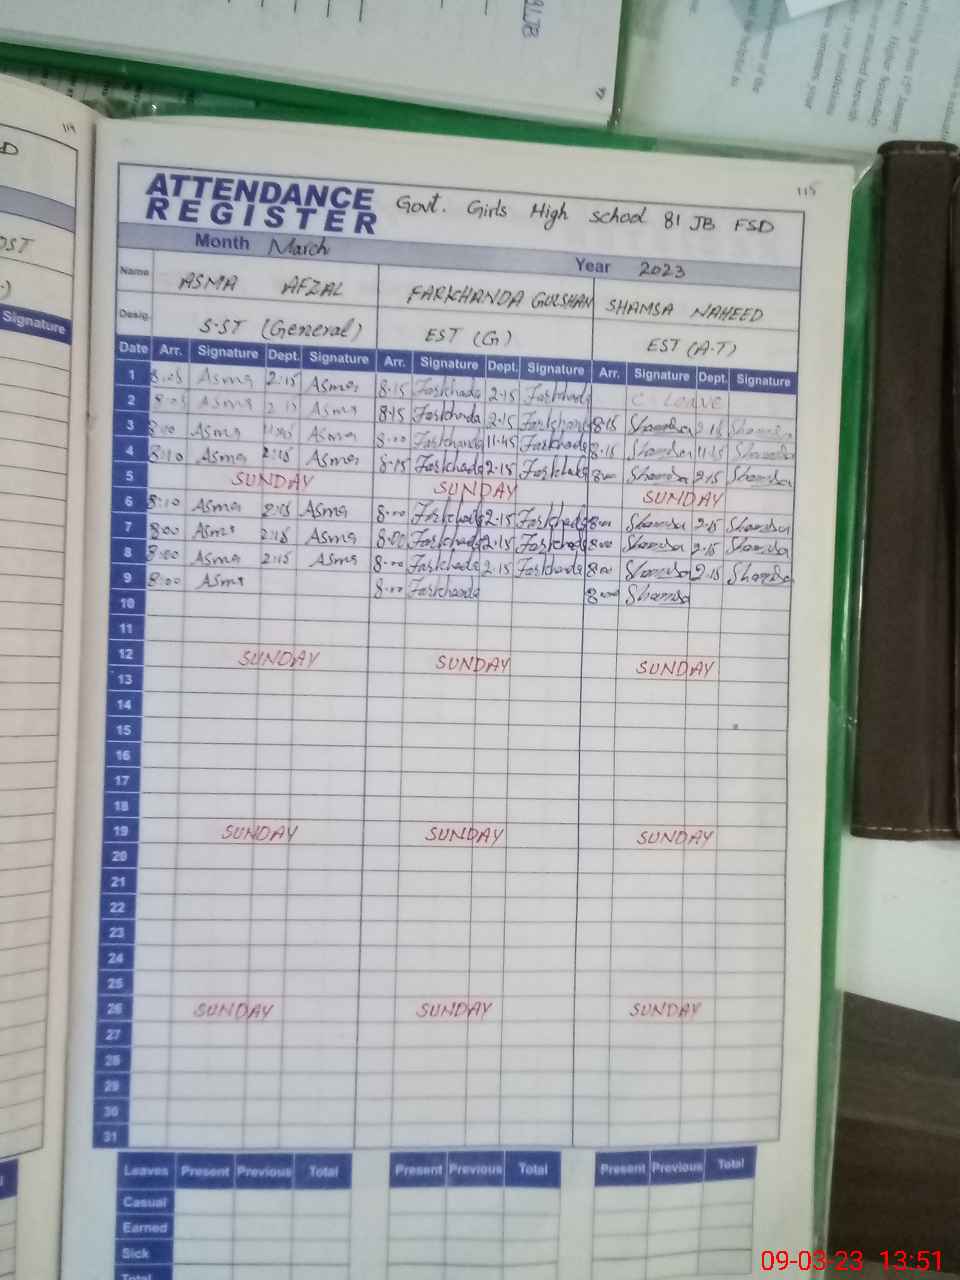 115
ATTENDANCE
REGISTER
Govt. Girls High school 81 JB FSD
Month March Year 2023
Name ASMA AFZAL FARKHANDA GULSHAN SHAMSA NAHEED
Desig. S.ST (General) EST (G) EST (A.T)
Date Arr. Signature Dept. Signature Arr. Signature Dept. Signature Arr. Signature Dept. Signature
1 8:05 Asma 2:15 Asma 8.15 Farkhada 2.15 Farkhada C. Leave
2 8:05 Asma 2:15 Asma 8.15 Farkhada 2.15 Farkhanda 8.15 Shamsa 2.15 Shamsa
3 8:00 Asma Asma 8.00 Farkhanda 11.45 Farkhada 8.15 Shamsa 11.45 Shamsa
4 8:10 Asma 2:15 Asma 8.15 Farkhada 2.15 Farkhada 8.00 Shamsa 2.15 Shamsa
5 SUNDAY SUNDAY SUNDAY
6 8:10 Asma 2:15 Asma 8.00 Farkhada 2.15 Farkhada 8.00 Shamsa 2.15 Shamsa
7 8:00 Asma 2:15 Asma 8.00 Farkhada 2.15 Farkhada 8.00 Shamsa 2.15 Shamsa
8 8:00 Asma 2:15 Asma 8.00 Farkhada 2.15 Farkhada 8.00 Shamsa 2.15 Shamsa
9 8:00 Asma 8.00 Farkhada 8.00 Shamsa
10
11
12 SUNDAY SUNDAY SUNDAY
13
14
15
16
17
18
19 SUNDAY SUNDAY SUNDAY
20
21
22
23
24
25
26 SUNDAY SUNDAY SUNDAY
27
28
29
30
31
Leaves Present Previous Total Present Previous Total Present Previous Total
Casual
Earned
Sick
Total
114
Signature
09-03-23 13:51